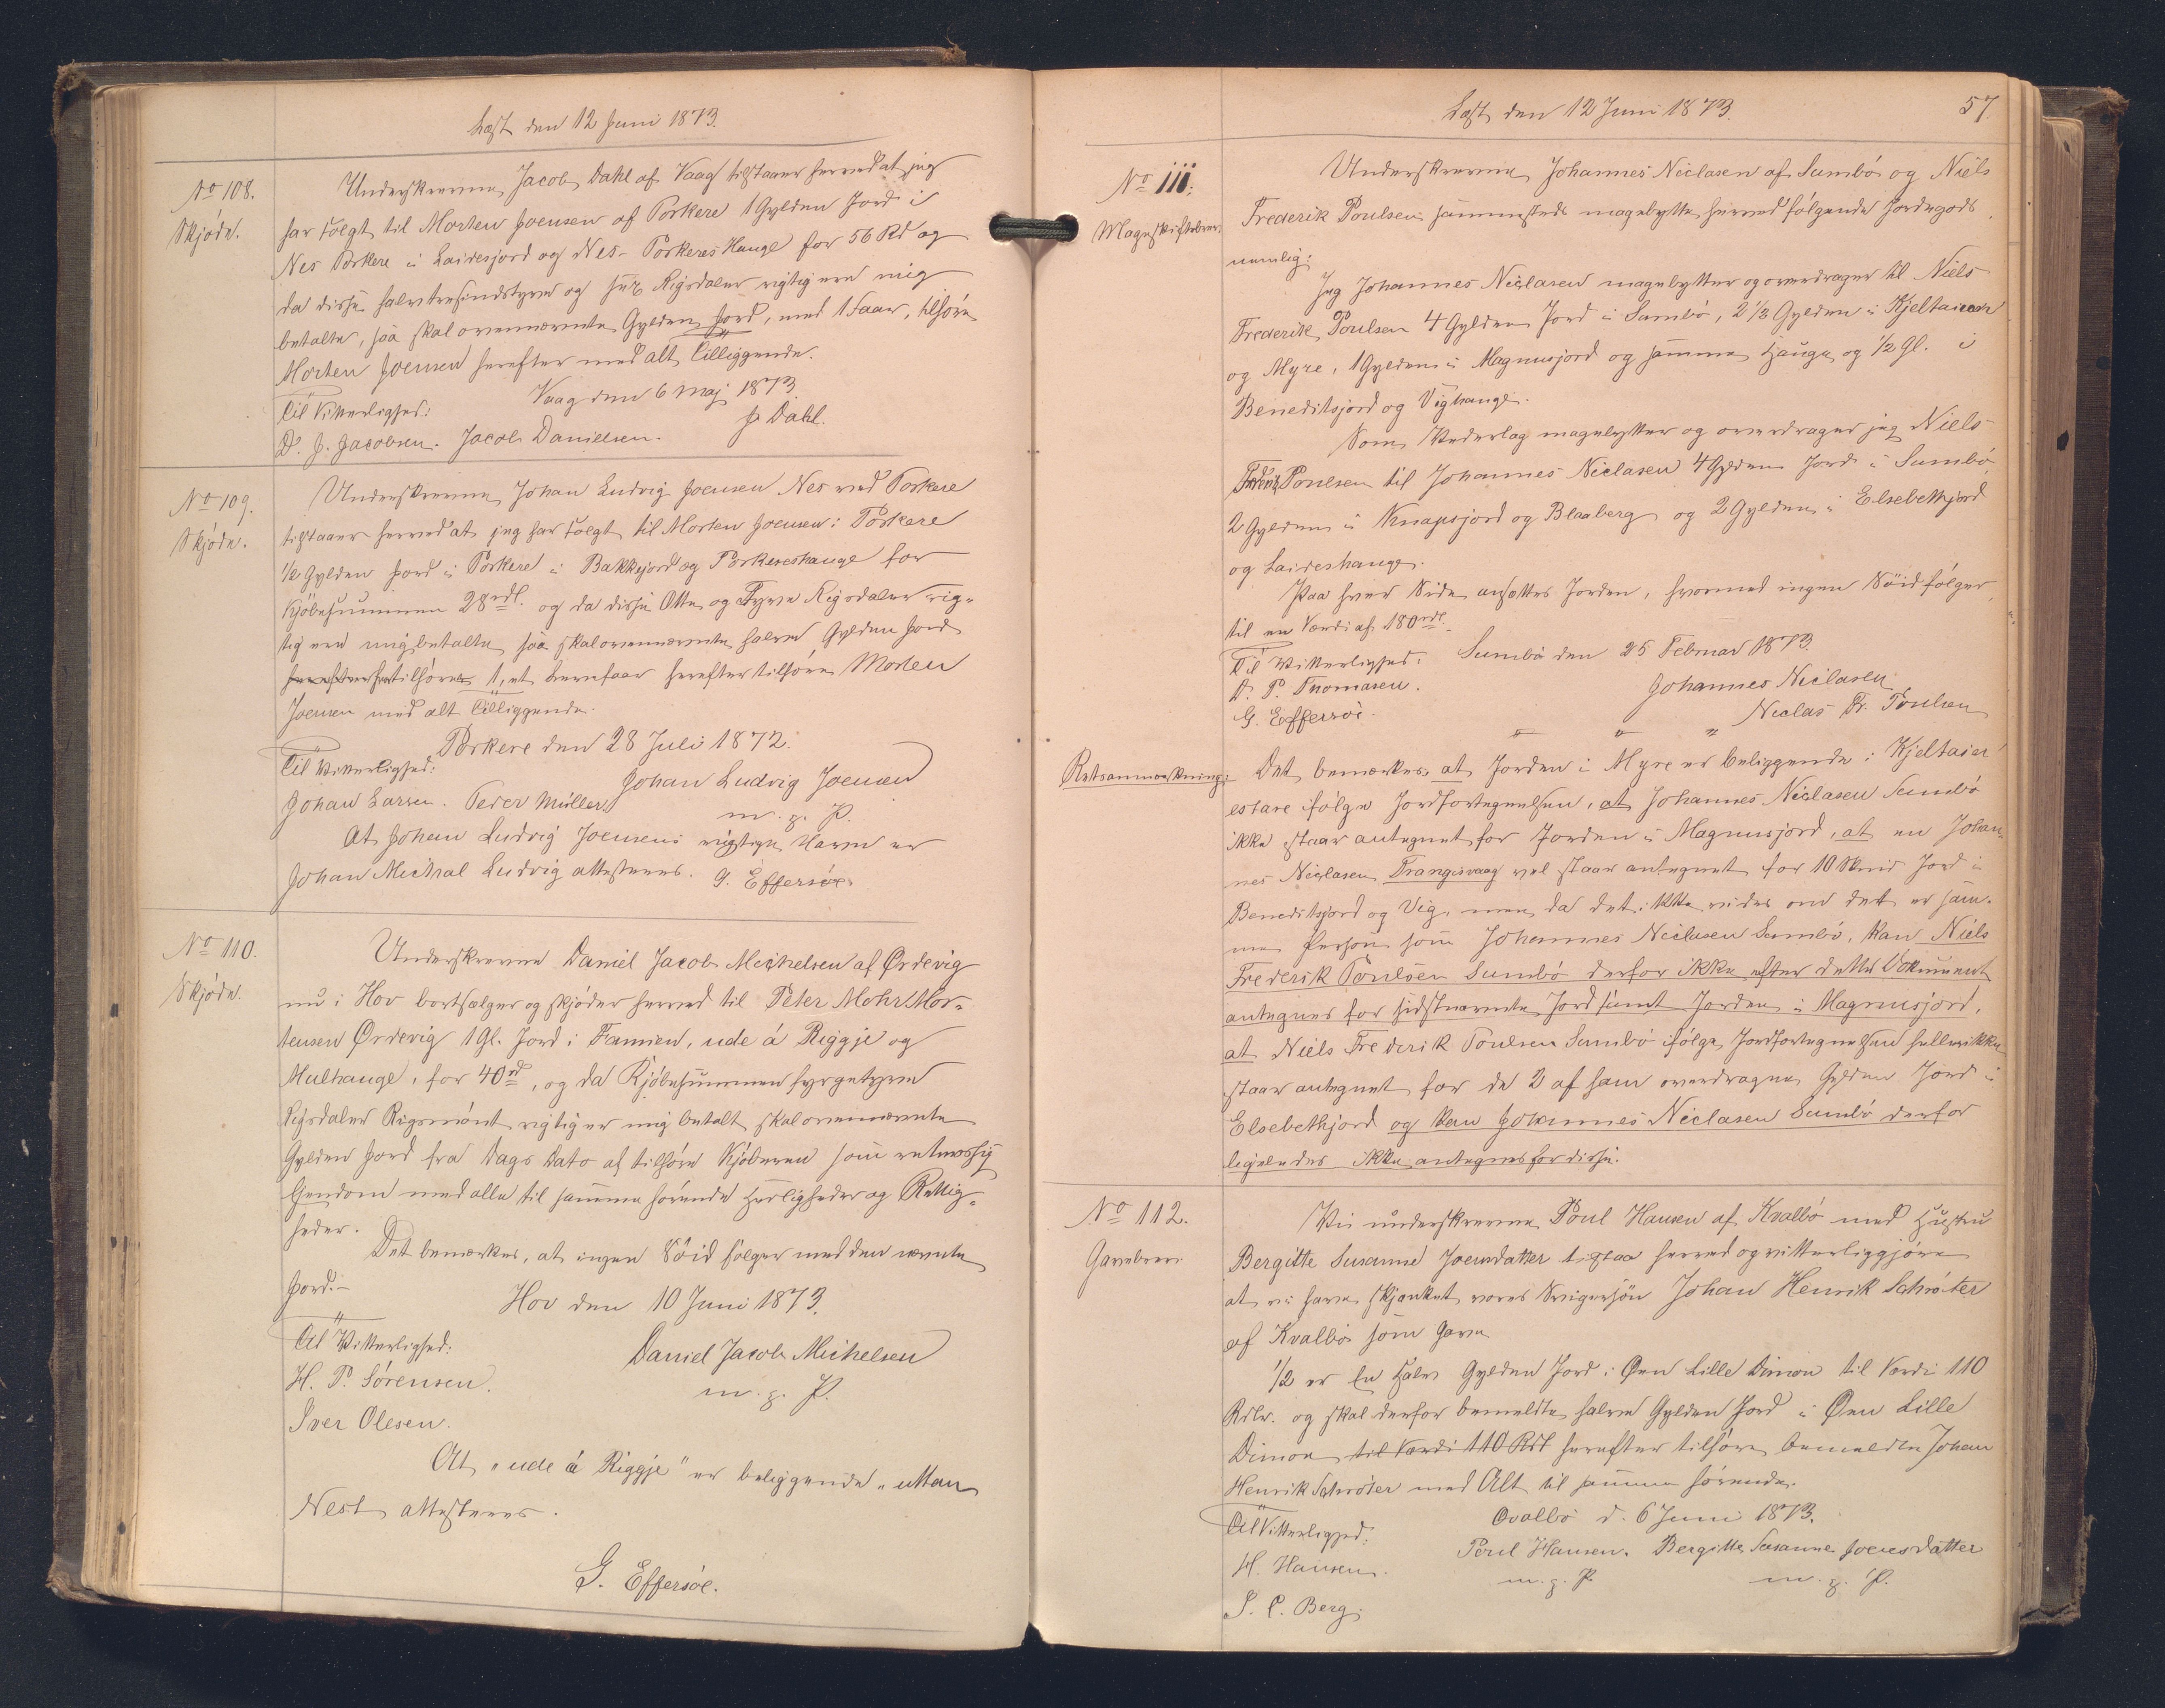 Læst den 12 Juni 1873.
No 108.
Skjöde.
Underskrevne Jacob Dahl af Vaag tilstaaer herved at jeg
har solgt til Morten Joensen af Porkere 1 Gylden Jord i
Nes Porkere i Laidesjord og Nes-Porkeres Hauge for 56 Rd og
da disse halvtresindstyve og sex Rigsdaler rigtig ere mig
betalte, saa skal ovennævnte Gylden Jord, med 1 Faar, tilhöre
Morten Joensen herefter med alt Tilliggende.
Vaag den 6 Maj 1873.
Til Vitterlighed:
J. Dahl.
D. J. Jacobsen. Jacob Danielsen.
No 109.
Skjöde.
Underskrevne Johan Ludvig Joensen Nes ved Porkere
tilstaaer herved at jeg har solgt til Morten Joensen i Porkere
1/2 Gylden Jord i Porkere i Bakkejord og Porkereshauge for
Kjöbesummen 28 rdl. og da disse Otte og Tyve Rigsdaler rig-
tig ere mig betalte saa skal ovennævnte halve Gylden Jord
herefter tilhöre 1, et herefter tilhöre Morten
Joensen med alt Tilliggende.
Porkere den 28 Juli 1872.
Til Vitterlighed:
Johan Ludvig Joensen
Johan Larsen. Peder Müller
m. p. P.
At Johan Ludvig Joensens rigtige Navn er
Johan Michal Ludvig attesteres. G. Effersöe.
No 110.
Skjöde.
Underskrevne Daniel Jacob Michelsen af Ördevig
nu i Hov bortsælger og skjöder herved til Peter Mohr Mor-
tensen Ördevig 1 Gl. Jord i Famien, ude á Riggje og
Mulhauge, for 40 rd, og da Kjöbesummen fyrgetyve
Rigsdaler Rigsmönt rigtig er mig betalt skal ovennævnte
Gylden Jord fra Dags Dato af tilhöre Kjöberen som retmæssig
Eiendom med alle til samme hörende Herligheder og Rettig-
heder.
Det bemærkes, at ingen Söid fölger med den nævnte
Jord.-
Hov den 10 Juni 1873.
Til Vitterlighed:
Daniel Jacob Michelsen
H. P. Sörensen.
m. p. P.
Iver Olesen.
At "ude á Riggje" er beliggende "uttan
Nes" attesteres.
G. Effersöe.
Læst den 12 Juni 1873.
57.
No 111.
Mageskiftebrev.
Underskrevne Johannes Niclasen af Sumbö og Niels
Frederik Poulsen sammesteds magebytte herved fölgende Jordegods
nemlig:
Jeg Johannes Niclasen magebytter og overdrager til Niels
Frederik Poulsen 4 Gylden Jord i Sumbö, 2 1/2 Gylden i Kjeltaiester
og Myre, 1 Gylden i Magnusjord og samme Hauge og 1/2 Gl. i
Beneditsjord og Vighauge.
Som Vederlag magebytter og overdrager jeg Niels
Fredrik Poulsen til Johannes Niclasen 4 Gylden Jord i Sumbö
2 Gylden i Knapsjord og Blaaberg og 2 Gylden i Elsebethjord
og Laideshauge.
Paa hver Side ansættes Jorden, hvormed ingen Söid fölger
til en Værdi af 180 rdl.
Til Vitterlighed: Sumbö den 25 Februar 1873.
D. P. Thomasen.
Johannes Niclasen
G. Effersöe.
Niclas Fr. Poulsen
Retsanmærkning:
Det bemærkes, at Jorden i Myre er beliggende i Kjeltaier
estare ifölge Jordfortegnelsen, at Johannes Niclasen Sumbö
ikke staar antegnet for Jorden i Magnusjord, at en Johan-
nes Niclasen Trangisvaag vel staar antegnet for 10 Skind Jord i
Beneditsjord og Vig, men da det ikke vides om det er sam-
me Person som Johannes Niclasen Sumbö, kan Niels
Frederik Poulsen Sumbö derfor ikke efter dette Dokument
antegnes for sidstnævnte Jord samt Jorden i Magnusjord,
at Niels Frederik Poulsen Sumbö ifölge Jordfortegnelsen hellerikke
staar antegnet for de 2 af ham overdragne Gylden Jord i
Elsebethjord og kan Johannes Niclasen Sumbö derfor
ligeledes ikke antegnes for disse.
No 112.
Gavebrev.
Vi underskrevne Poul Hansen af Kvalbö med Hustru
Bergitte Susanne Joensdatter tilstaa herved og vitterliggjöre
at vi have skjænket vores Svigersön Johan Henrik Schröter
af Kvalbö som Gave
1/2 er En halv Gylden Jord i Öen Lille Dimon til Værdi 110
Rdlr. og skal derfor bemeldte halve Gylden Jord i Öen Lille
Dimon til Værdi 110 Rdl herefter tilhöre bemeldte Johan
Henrik Schröter med Alt til samme hörende.
Qvalbö d. 6 Juni 1873.
Til Vitterlighed:
Poul Hansen. Bergitte Susanne Joensdatter
H. Hansen.
m. p. P. m. p. P.
S. C. Berg.